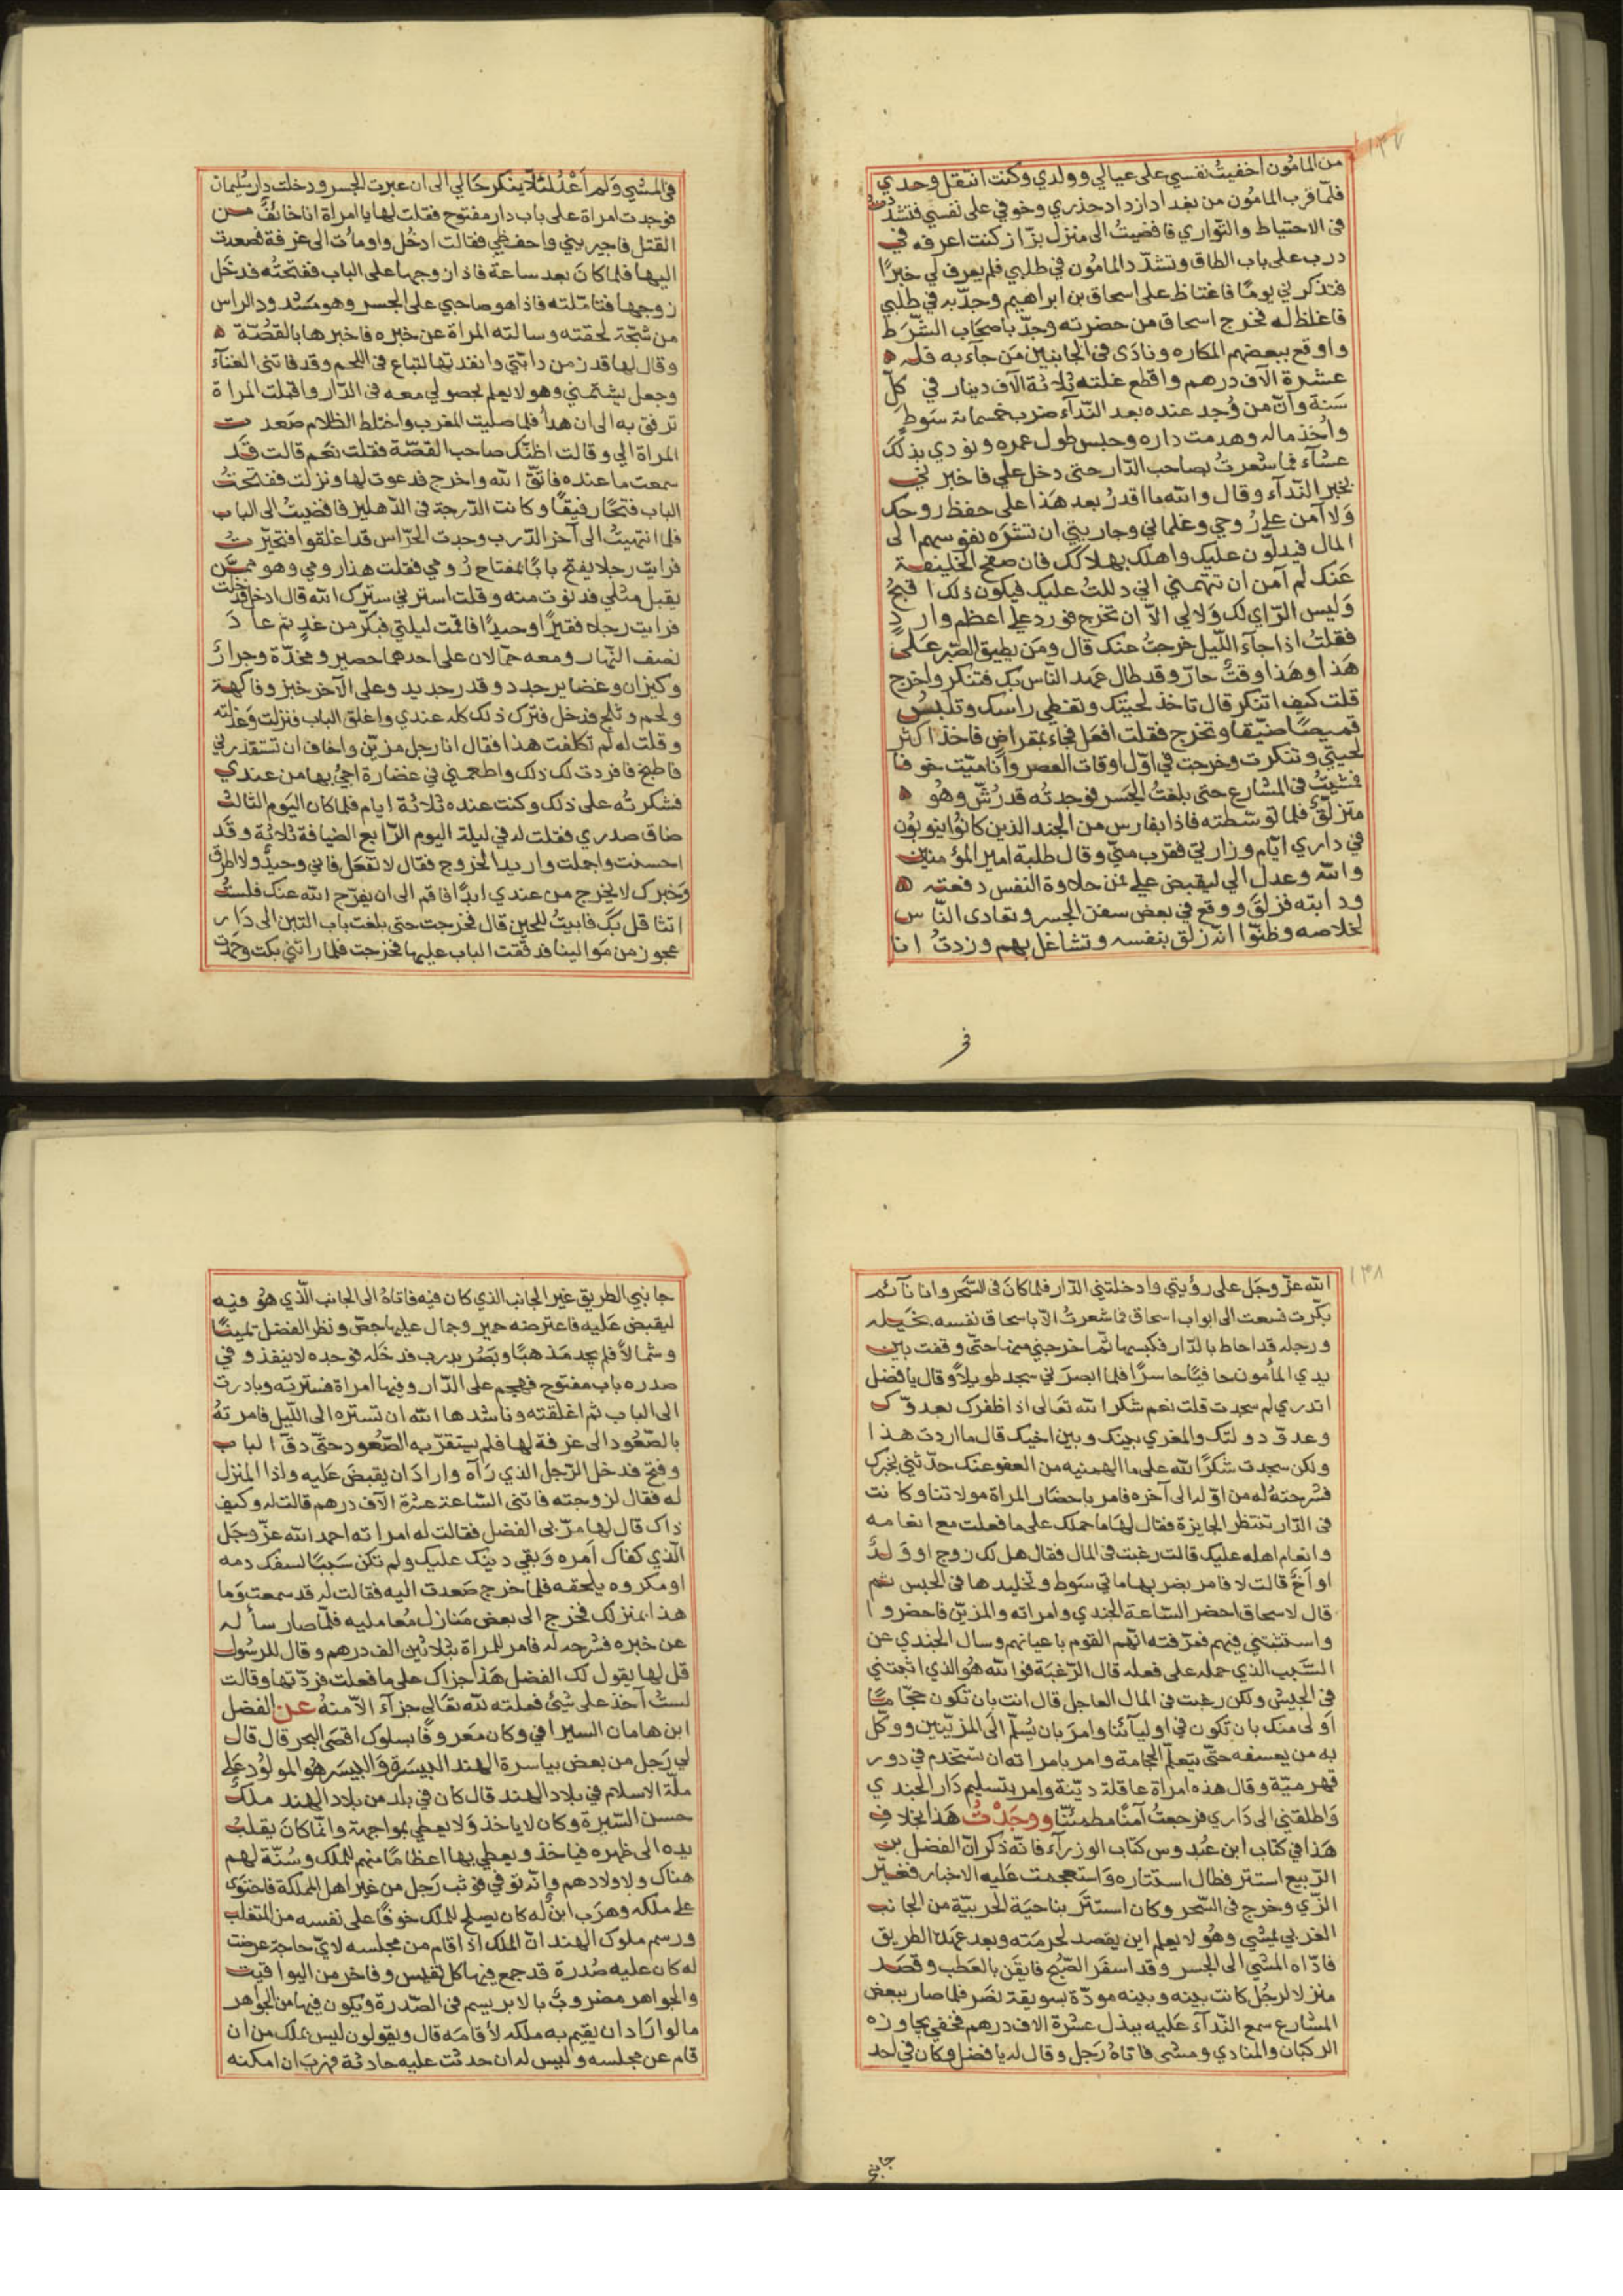 ١٣٧
من المامُون اخفيتُ نفسي على عيالي وولدي وكنت انتقل وحدي
فلمّا قرب المامُون من بغداد ازداد حذري وخوفي على نفسي فتشدّدت
فى الاحتياط والتواري فافضيتُ الى منزل بزّاز كنت اعرفه في
درب على باب الطاق وتشدّد المامُون في طلبي فلم يعرف لي خبرًا
فتذكرني يومًا فاغتاظ على اسحاق بن ابراهيم وجدّ به في طلبي
فاغلظ له فخرج اسحاق من حضرته وجدّ باصحاب الشّرَط
واوقع ببعضهم المكاره ونادَى فى الجانبين مَن جآء به فله
عشرة الآف درهم واقطع غلته ثلاثة الآف دينار في كلّ
سَنة وانّ من وُجد عنده بعد النّدآء ضرب خمسمائة سَوطٍ
واُخذ ماله وهدمت داره وحبس طول عمره ونودي بذلك
عشآء فما شعرتُ بصاحب الدّار حتى دخل علي فاخبرني
بخبر النّدآء وقال والله ما اقدرُ بعد هَذا على حفظ روحك
وَلا آمن على زُوجي وغلماني وجاريتي ان تشرَه نفوسهم الى
المال فيدلّون عليك واهلك بهلاكك فان صفح الخليفة
عَنك لم آمن ان تتهمني اني دللتُ عليك فيكون ذلك اقبحُ
وَليس الرّاي لك وَلا لي الاّ ان تخرج فورد علي اعظم واردٍ
فقلتُ اذا جآء اللّيل خرجتُ عنك قال ومَن يطيق الصّبر عَلى
هَذا وهَذا وقتٌ حارّ وقد طال عهد النّاس بك فتنكر واخرج
قلت كيف اتنكر قال تاخذ لحيتك وتغطي راسك وتلبسُ
قميصًا ضيّقا وتخرج فقلت افعَل فجاء بمقراضٍ فاخذ اكثر
لحيتي وتنكرت وخرجت في اوّل اوقات العصر وانا ميّت خوفا
فمشيتُ فى الشارع حتى بلغتُ الجَسر فوجدته قد رُشّ وهُو
متزلّق فلما توسّطته فاذا بفارس من الجند الذين كانوُا ينوبُون
في داري ايّام وزارتي فقرب منّي وقال طلبة امير المؤمنين
والله وعدل الي ليقبض علي فمن حلاوة النفس دفعته
ودابته فزلقَ ووقع في بعض سفن الجسر وتعادى النّاس
لخلاصه وظنّوا انّه زلق بنفسه وتشاغل بهم وزدتُ انا
في
فى المشي وَلم اَعْدُ لئلاّ ينكر حَالي الى ان عبرت الجسر ودخلت دار سُليمان
فوجدت امراة على باب دار مفتوح فقلت لها يا امراة انا خائفٌ من
القتل فاجيريني واحفظي فقالت ادخُل واومأت الى غرفة فصعدت
اليها فلما كانَ بعد ساعة فاذا زوجها على الباب ففتحتُه فدخَل
زوجها فتامّلته فاذا هو صاحبي على الجسر وهو مَشدود الراس
من شجّة لحقته وسالته المراة عن خبره فاخبرها بالقصّة
وقال لها قد زمن دابّتي وانفذتها لتباع فى اللحم وقد فاتنى الغنآء
وجعل يشتمني وهو لا يعلم بحصولي معه فى الدّار واقبلت المراة
ترفق به الى ان هدأ فلما صليت المغرب واختلط الظلام صَعدت
المراة الي وقالت اظنّك صاحب القصّة فقلت نعَم قالت قد
سمعت ما عنده فاتّق الله واخرج فدعوت لها ونزلت ففتحتُ
الباب فتحًا رفيقًا وكانت الدّرجة فى الدّهليز فافضيتُ الى الباب
فلما انتهيتُ الى آخر الدّرب وجدت الحرّاس قد اغلقوا فتحيّرتُ
فرايت رجلا يفتح بابًا بمفتاح رُومي فقلت هذا رومي وهو ممّن
يقبل مثلي فدنوت منه وقلت استرني سترك الله قال ادخل فدخلت
فرايت رجلا فقيرًا وحيدًا فاقمت ليلتي فبكّر من غدٍ ثم عادَ
نصف النّهار ومعه حمّالان على احدهما حصير ومخدّة وجرارُ
وكيزان وغضاير جدد وقدر جديد وعلى الآخر خبز وفاكهة
ولحم وثلج فدخل فترك ذلك كله عندي واغلق الباب فنزلت وَعذلته
وقلت له لم تكلفت هذا فقال انا رجل مزيّن واخاف ان تستقذرني
فاطبخ فافردت لك ذلك واطعمني في غضارة اجئُ بها من عندي
فشكرتُه على ذلك وكنت عنده ثلاثة ايام فلما كان اليَوم الثالث
ضاق صدري فقلت له في ليلة اليوم الرّابع الضيافة ثلاثة وقَد
احسنت واجملت واريد الخروج فقال لا تفعَل فاني وحيدٌ ولا اطرق
وَخبرك لا يخرج من عندي ابدًا فاقم الى ان يفرّج الله عنك فلستُ
اتثاقل بكَ فابيتُ للحين قال فخرجت حتى بلغت باب التبن الى دَار
عجوز من مَوالينا فدقّقت الباب عليها فخرجت فلما راتني بكت وحمدت
١٣٨
الله عزّ وجَل على رؤيتي وادخلتني الدّار فلما كانَ فى السّحَر وانا نآئم
بكّرت فسعت الى ابواب اسحاق فما شعرتُ الاّ باسحاق نفسه بخيله
ورجله قد احاط بالدّار فكبسها ثمّ اخرجني منها حتّى وقفت بين
يدي المأمون حافيًا حاسرًا فلما ابصرَني سجد طويلاً وقال يا فضل
اتدري لم سجدت قلت نعم شكرا لله تعَالى اذ اظفرك بعدوّك
وعدوّ دولتك والمغري بينك وبين اخيك قال ما اردت هذا
ولكن سجدت شكرًا لله على ما الهمنيه من العفو عنك حدّثني بخبرك
فشرحتهُ له من اوّله الى آخره فامر باحضَار المراة مولاتنا وكانت
فى الدّار تنتظر الجايزة فقال لهَا ما حملك على ما فعلت مع انعامه
وانعام اهله عليك قالت رغبت فى المال فقال هل لك زوج او وَلدٌ
او اَخٌ قالت لا فامر بضربها مائتي سَوط وتخليدها فى الحبس ثم
قال لاسحاق احضر السّاعة الجندي وامراته والمزيّن فاحضروا
واستثبتني فيهم فعرّفته انّهم القوم باعيانهم وسال الجندي عن
السَّبب الذي حمله على فعله قال الرّغبَة فوالله هُو الذي اثبتني
فى الجيش ولكن رغبت فى المال العاجل قال انت بان تكون حجّامًا
اَولى منك بان تكون في اوليآئنا وامرَ بان يُسلّم الَى المزيّنين ووكّل
به من يعسفه حتّى يتعلّم الحجامة وامر بامراته ان تستخدم في دور
قهرميّة وقال هذه امراة عاقلة ديّنة وامر بتسليم دَار الجندي
وَاطلقني الى دَاري فرجعتُ آمنًا مطمئنًّا ووجَدْتُ هَذا بخلافِ
هَذا في كتاب ابن عبدوس كتاب الوزرآء فانّه ذكر انّ الفضل بن
الرّبيع استتر فطال استتاره وَاستعجمت عَليه الاخبار فغيّر
الزّي وخرج فى السّحر وكان استَتَر بناحيَة الحربيّة من الجانب
الغربي لمشي وهُو لا يعلم اين يقصد لحرمَته وبعد عهده الطريق
فادّاه المشي الى الجسر وقد اسفَر الصّبُح فايقَن بالعَطَب وقصَد
منزلا لرجُل كانت بينه وبينه مودّة بسويقة نصَر فلما صار ببعض
المشارع سمع النّدآء عَليه ببذل عشرة الاف درهم فخفي بجاوزه
الركبان والمنادي ومشى فاتاهُ رَجل وقال له يا فضل وكان في احد
جانبي
جانبي الطريق غير الجانب الذي كان فيه فاتاهُ الى الجانب الّذي هُو فيه
ليقبض عَليه فاعترضه حمير وجمال عليها جصّ ونظر الفضل يمينًا
وشمالاً فلم يجد مَذهبًا وبَصُر بدرب فدخَله فوجده لا ينفذ وفي
صدره باب مفتوح فهجم على الدّار وفيها امراة فسترته وبادرت
الى الباب ثم اغلقته وناشدها الله ان تستره الى اللّيل فامرتهُ
بالصّعُود الى غرفة لها فلم يستقرّ به الصّعُود حتّى دقّ الباب
وفتح فدخل الرّجل الذي رَآه وارادَ ان يقبضَ عَليه واذا المنزل
له فقال لزوجته فاتني السّاعة عشرة الآف درهم قالت له وكيف
ذاك قال لها مرّ بى الفضل فقالت له امراته احمد الله عزّ وجَل
الّذي كفاك اَمره وَبقي دينك عليك ولم تكن سَببًا لسفك دمه
او مكروه يلحقه فلما خرج صَعدت اليه فقالت له قد سمعت وَما
هذا بمنزلك فخرج الى بعض مَنازل مُعامليه فلمّا صار سأله
عن خبره فشرحه له فامر للمراة بثلاثين الف درهم وقال للرسُول
قل لها يقول لك الفضل هَذا جزاك على ما فعلت فردّتها وقالت
لستُ آخذ على شئ فعلته لله تعَالى جزآء الاّ منهُ عن الفضل
ابن هامان السيرافي وكان مَعروفًا بسلوك اقصَى البحر قال قال
لي رَجل من بعض بياسرة الهند البيسَرة وَالبيسَر هُو المولُود عَلى
ملّة الاسلام في بلاد الهند قال كان في بلد من بلاد الهند ملكٌ
حسن السّيرة وكان لا ياخذ وَلا يعطي بمواجهة وانّما كانَ يقلبُ
يده الى ظهره فياخذ ويعطي بها اعظامًا منهم للملك وسُنّة لهم
هناك ولاولادهم وانّه توفي فوثب رَجل من غير اهل المملكة فاحتوى
على ملكه وهرَب ابنٌ له كان يصلح للملك خوفًا على نفسه من المتغلب
ورسم ملوك الهند انّ الملك اذا قام من مجلسه لايّ حاجة عرضت
له كان عليه صُدرة قد جمع فيها كل نفيس وفاخر من اليواقيت
والجواهر مضروبٌ بالابريسم فى الصّدرة ويكون فيها من الجواهر
ما لو ارَادَ ان يقيم به ملكه لأقامَه قال ويقولون ليس بملك من ان
قام عن مجلسه وليس له ان حدثت عليه حادثة فهرَبَ ان امكنه